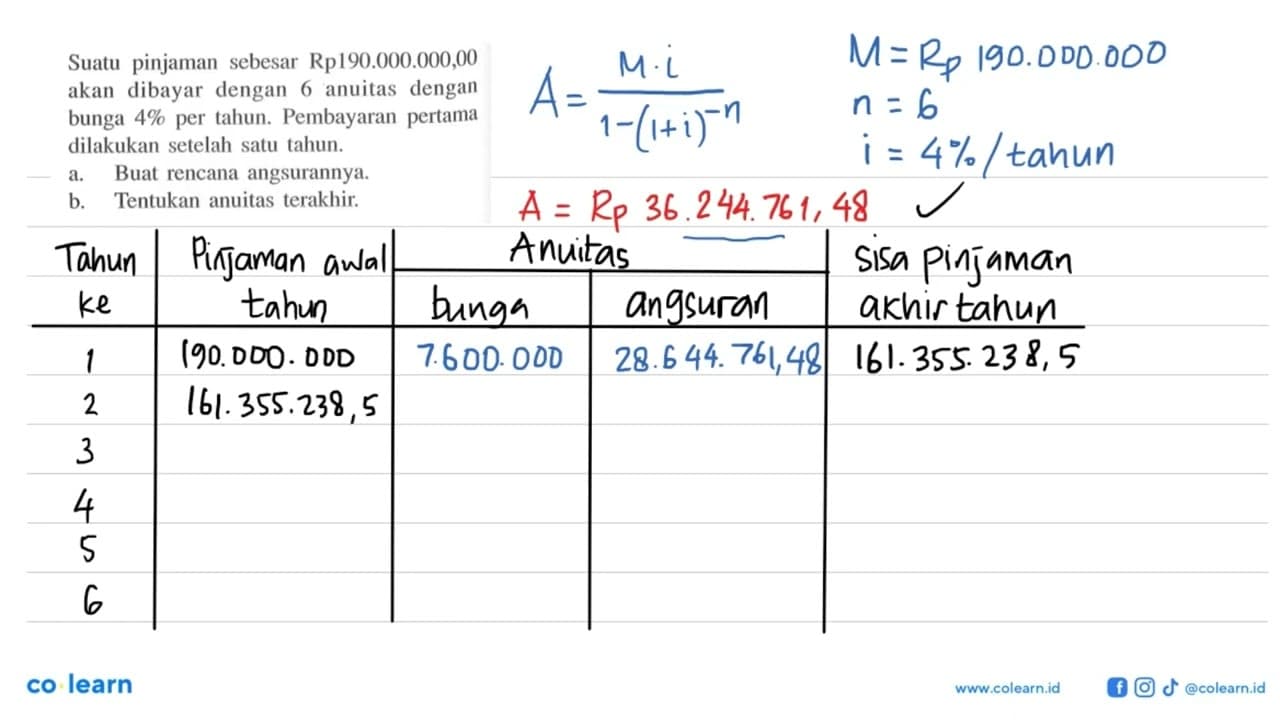 Suatu pinjaman sebesar Rp190.000.000,00
akan dibayar dengan 6 anuitas dengan
bunga 4% per tahun. Pembayaran pertama
dilakukan setelah satu tahun.
a. Buat rencana angsurannya.
b. Tentukan anuitas terakhir.
A = M·i / 1-(1+i)^-n
M = Rp 190.000.000
n = 6
i = 4%/tahun
A = Rp 36.244.761,48 ✓
Tahun ke
Pinjaman awal tahun
Anuitas
bunga
angsuran
sisa pinjaman akhir tahun
1 190.000.000 7.600.000 28.644.761,48 161.355.238,5
2 161.355.238,5
3
4
5
6
co learn
www.colearn.id
@colearn.id